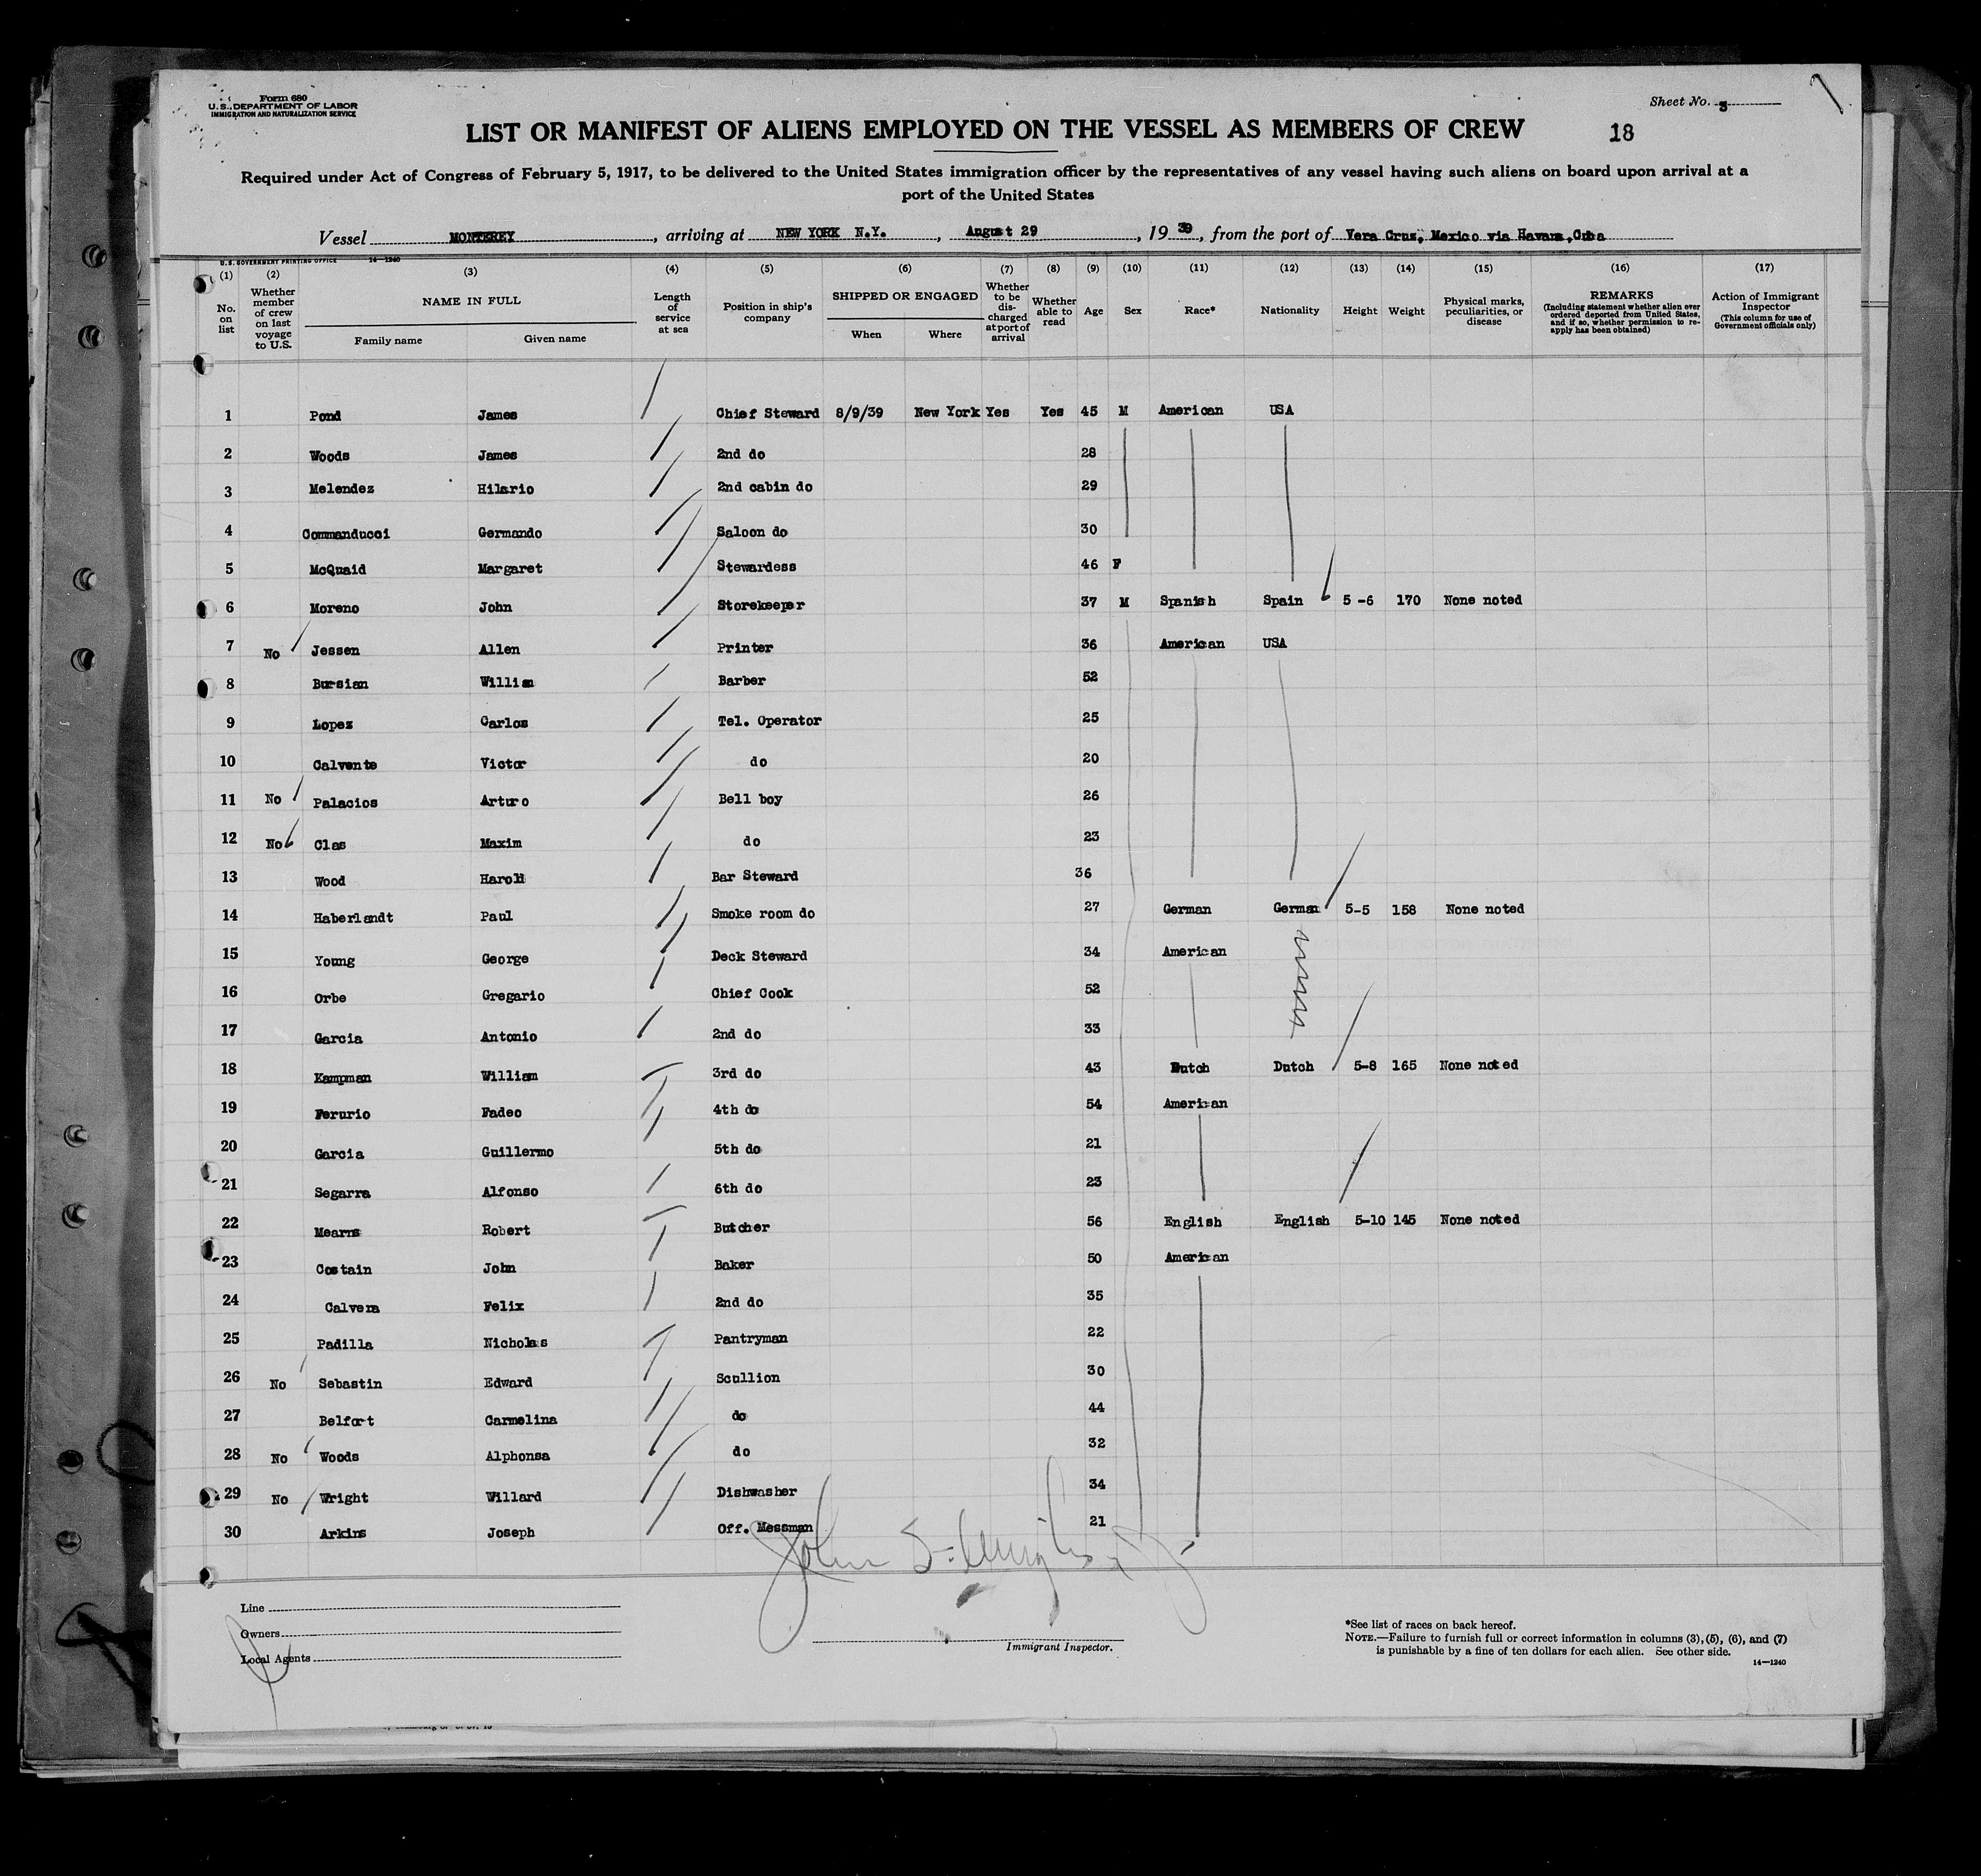 Form 680
U.S. DEPARTMENT OF LABOR
IMMIGRATION AND NATURALIZATION SERVICE
Sheet No. 3
LIST OR MANIFEST OF ALIENS EMPLOYED ON THE VESSEL AS MEMBERS OF CREW
18
Required under Act of Congress of February 5, 1917, to be delivered to the United States immigration officer by the representatives of any vessel having such aliens on board upon arrival at a
port of the United States
Vessel MONTEREY, arriving at NEW YORK N.Y., August 29, 1939, from the port of Vera Cruz, Mexico via Havana, Cuba
U.S. GOVERNMENT PRINTING OFFICE 14—1240
(1) (2) (3) (4) (5) (6) (7) (8) (9) (10) (11) (12) (13) (14) (15) (16) (17)
No. on list
Whether member of crew on last voyage to U.S.
NAME IN FULL
Family name Given name
Length of service at sea
Position in ship's company
SHIPPED OR ENGAGED
When Where
Whether to be discharged at port of arrival
Whether able to read
Age
Sex
Race*
Nationality
Height
Weight
Physical marks, peculiarities, or disease
REMARKS
(Including statement whether alien ever ordered deported from United States, and if so, whether permission to reapply has been obtained)
Action of Immigrant Inspector
(This column for use of Government officials only)
1 Pond James Chief Steward 8/9/39 New York Yes Yes 45 M American USA
2 Woods James 2nd do 28
3 Melendez Hilario 2nd cabin do 29
4 Commanducci Germando Saloon do 30
5 McQuaid Margaret Stewardess 46 F
6 Moreno John Storekeeper 37 M Spanish Spain 5-6 170 None noted
7 No Jessen Allen Printer 36 American USA
8 Bursian William Barber 52
9 Lopez Carlos Tel. Operator 25
10 Calvente Victor do 20
11 No Palacios Arturo Bell boy 26
12 No Clas Maxim do 23
13 Wood Harold Bar Steward 36
14 Haberlandt Paul Smoke room do 27 German German 5-5 158 None noted
15 Young George Deck Steward 34 American
16 Orbe Gregario Chief Cook 52
17 Garcia Antonio 2nd do 33
18 Kampman William 3rd do 43 Dutch Dutch 5-8 165 None noted
19 Ferurio Fadeo 4th do 54 American
20 Garcia Guillermo 5th do 21
21 Segarra Alfonso 6th do 23
22 Mearns Robert Butcher 56 English English 5-10 145 None noted
23 Costain John Baker 50 American
24 Calvera Felix 2nd do 35
25 Padilla Nicholas Pantryman 22
26 No Sebastin Edward Scullion 30
27 Belfort Carmelina do 44
28 No Woods Alphonsa do 32
29 No Wright Willard Dishwasher 34
30 Arkins Joseph Off. Messman 21
Line
Owners
Local Agents
Immigrant Inspector.
*See list of races on back hereof.
NOTE.—Failure to furnish full or correct information in columns (3), (5), (6), and (7)
is punishable by a fine of ten dollars for each alien. See other side.
14—1240